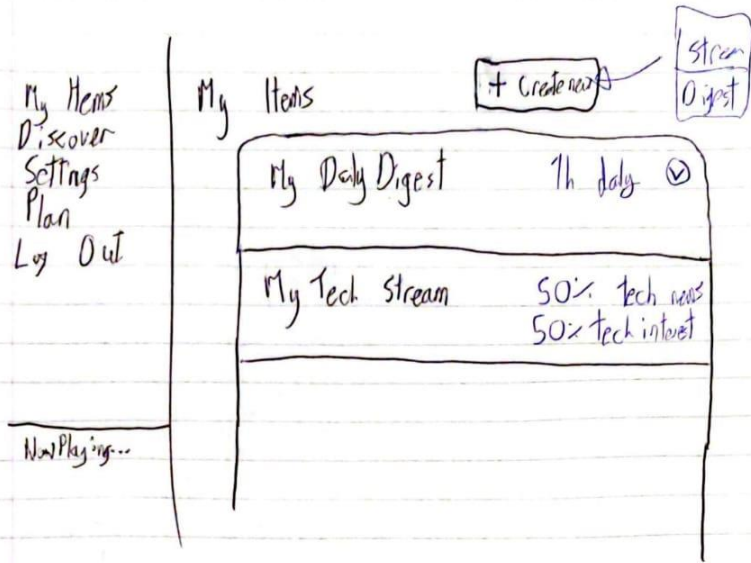 My Items
Discover
Settings
Plan
Log Out
Now Playing...
My Items
+ Create new
Stream
Digest
My Daily Digest
1h daly
My Tech Stream
50% tech news
50% tech interest